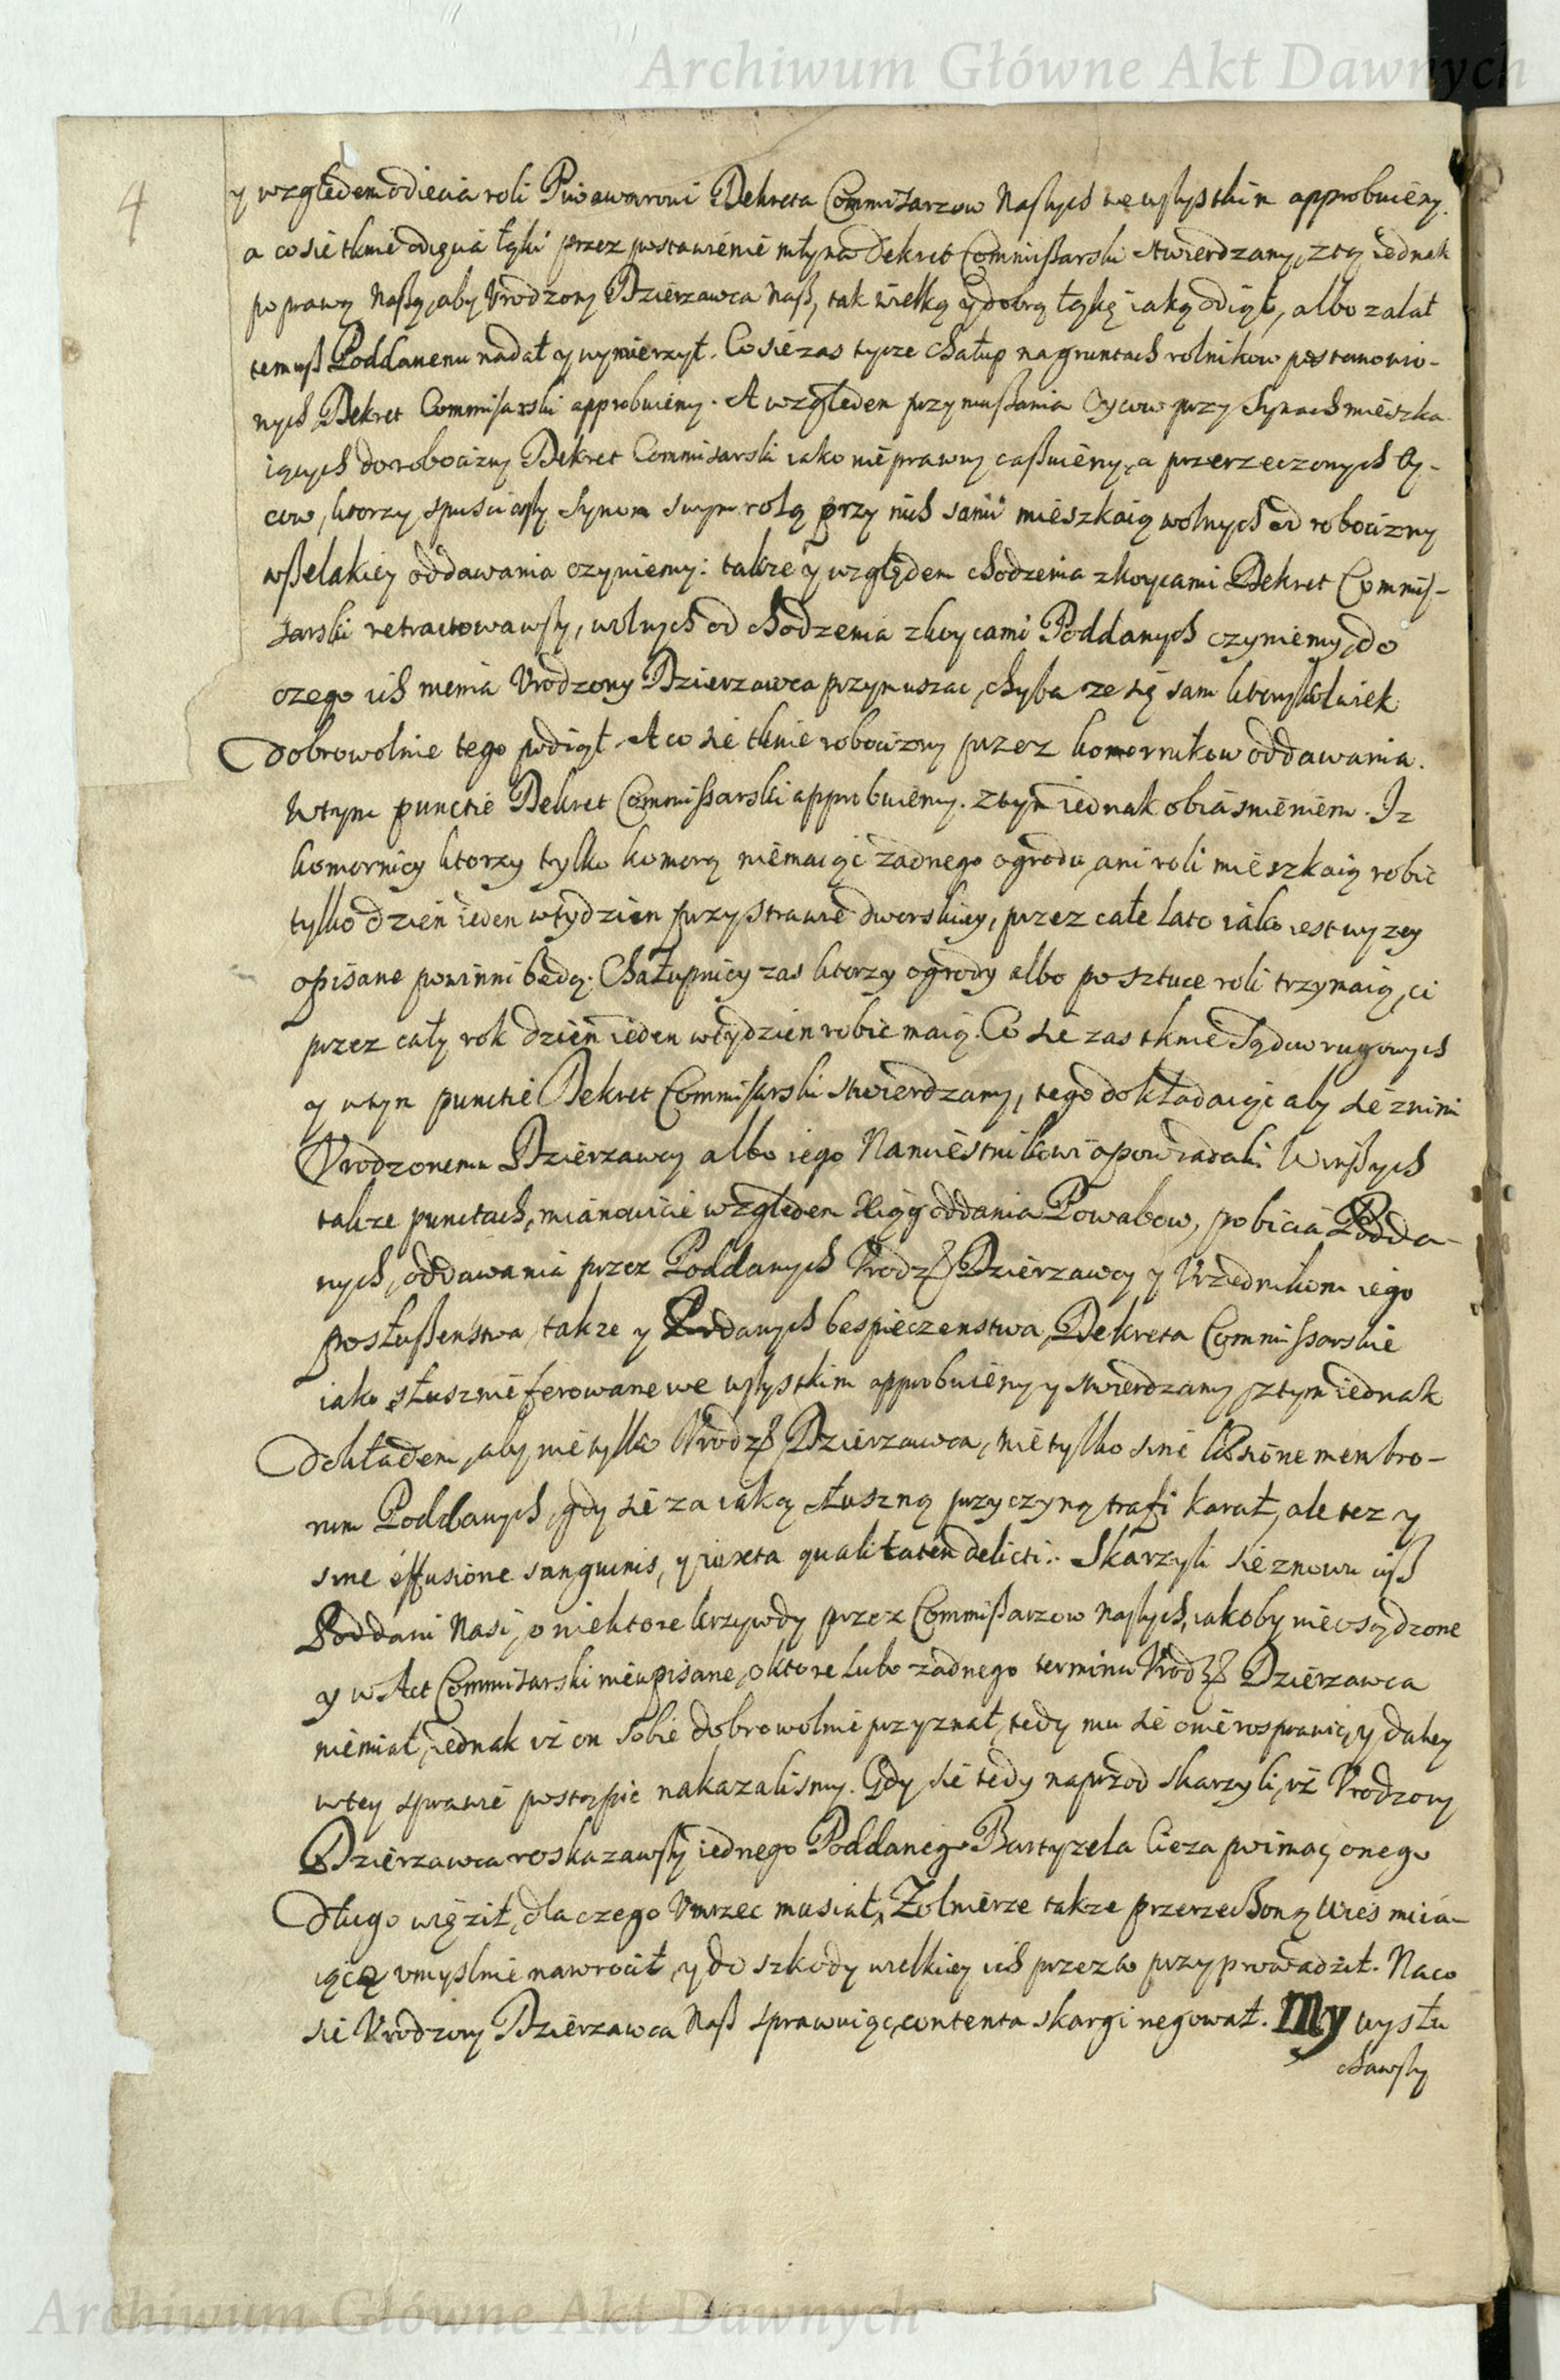 Archiwum Główne Akt Dawnych
4
y względem odięcia roli Piwowarowi Dekreta Commisarzow Naszych we wszystkim approbuiemy.
a co sie tknie odięcia łąki przez postawienie młyna Dekret Commissarski stwierdzamy, z tą iednak
poprawą Naszą, aby Vrodzony Dzierzawca Nasz, tak wielką y dobrą łąkę iaką odiął, albo zalał
temusz Poddanemu nadał y wymierzył. Co sie zas tycze chałup na gruntach rolnikow postanowio-
nych Dekret Commisarski approbuiemy. A względem przymuszania Oycow przy Synach mieszka-
iących do robocizny Dekret Commisarski iako nieprawny cassuiemy, a przerzeczonych Oy-
cow, ktorzy spusciwszy Synom swym rolą przy nich sami mieszkaią wolnych od robocizny
wszelakiey oddawania czyniemy: takze y względem chodzenia z koycami Dekret Commis-
sarski retractowawszy, wolnych od chodzenia z koycami Poddanych czyniemy, do
czego ich niema Vrodzony Dzierzawca przymuszac, chyba ze się sam ktoryszkolwiek
dobrowolnie tego podiął. A co sie tknie robocizny przez komornikow oddawania.
W tym punctie Dekret Commissarski approbuiemy. z tym iednak obiasnieniem. Iz
komornicy ktorzy tylko komorą niemaiąc zadnego ogrodu, ani roli mieszkaią robic
tylko dzien ieden w tydzien przy strawie dworskiey, przez całe lato iako iest wyzey
opisane powinni będą. Chałupnicy zas ktorzy ogrody albo po sztuce roli trzymaią, ci
przez cały rok dzien ieden w tydzien robic maią. Co sie zas tknie Sądow rugowych
y w tym punctie Dekret Commissarski stwierdzamy, tego dokładaiąc aby sie z nimi
Vrodzonemu Dzierzawcy albo iego Namiestnikowi opowiadali W inszych
takze punctach, mianowicie względem Xiąg oddania Powabow, pobicia Podda-
nych, oddawania przez Poddanych Vrodz: Dzierzawcy y Vrzednikom iego
posłuszenstwa, takze y Poddanych bespieczenstwa, Dekreta Commissarskie
iako słusznie ferowane we wszystkim approbuiemy y stwierdzamy, z tym iednak
dokładem, aby nie tylko Vrodz: Dzierzawca, nie tylko sine læsione membro-
rum Poddanych, gdy sie za iaką słuszną przyczyną trafi karał, ale tez y
sine effusione sanguinis, y iuxta qualitatem delicti. Skarzyli sie znowu cisz
Poddani Nasi, o niektore krzywdy przez Commissarzow Naszych, iakoby nieosądzone
y w Act Commisarski niewpisane, o ktore lubo zadnego terminu Vrodz: Dzierzawca
niemiał, iednak iz on sobie dobrowolnie przyznał, tedy mu sie o nie rosprawic, y daley
w tey sprawie postąpic nakazalismy. Gdy sie tedy naprzod skarzyli, iz Vrodzony
Dzierzawca roskazawszy iednego Poddanego Bartyzela Cieza poimac, onego
długo więził, dla czego Vmrzec musiał, Zołnierze takze przerzeczoną Wies miia-
iącą vmyslnie nawrocił, y do szkody wielkiey ich przez to przyprowadził. Na co
sie Vrodzony Dzierzawca Nasz sprawuiąc, contenta skargi negował. My wysłu
chawszy
Archiwum Główne Akt Dawnych